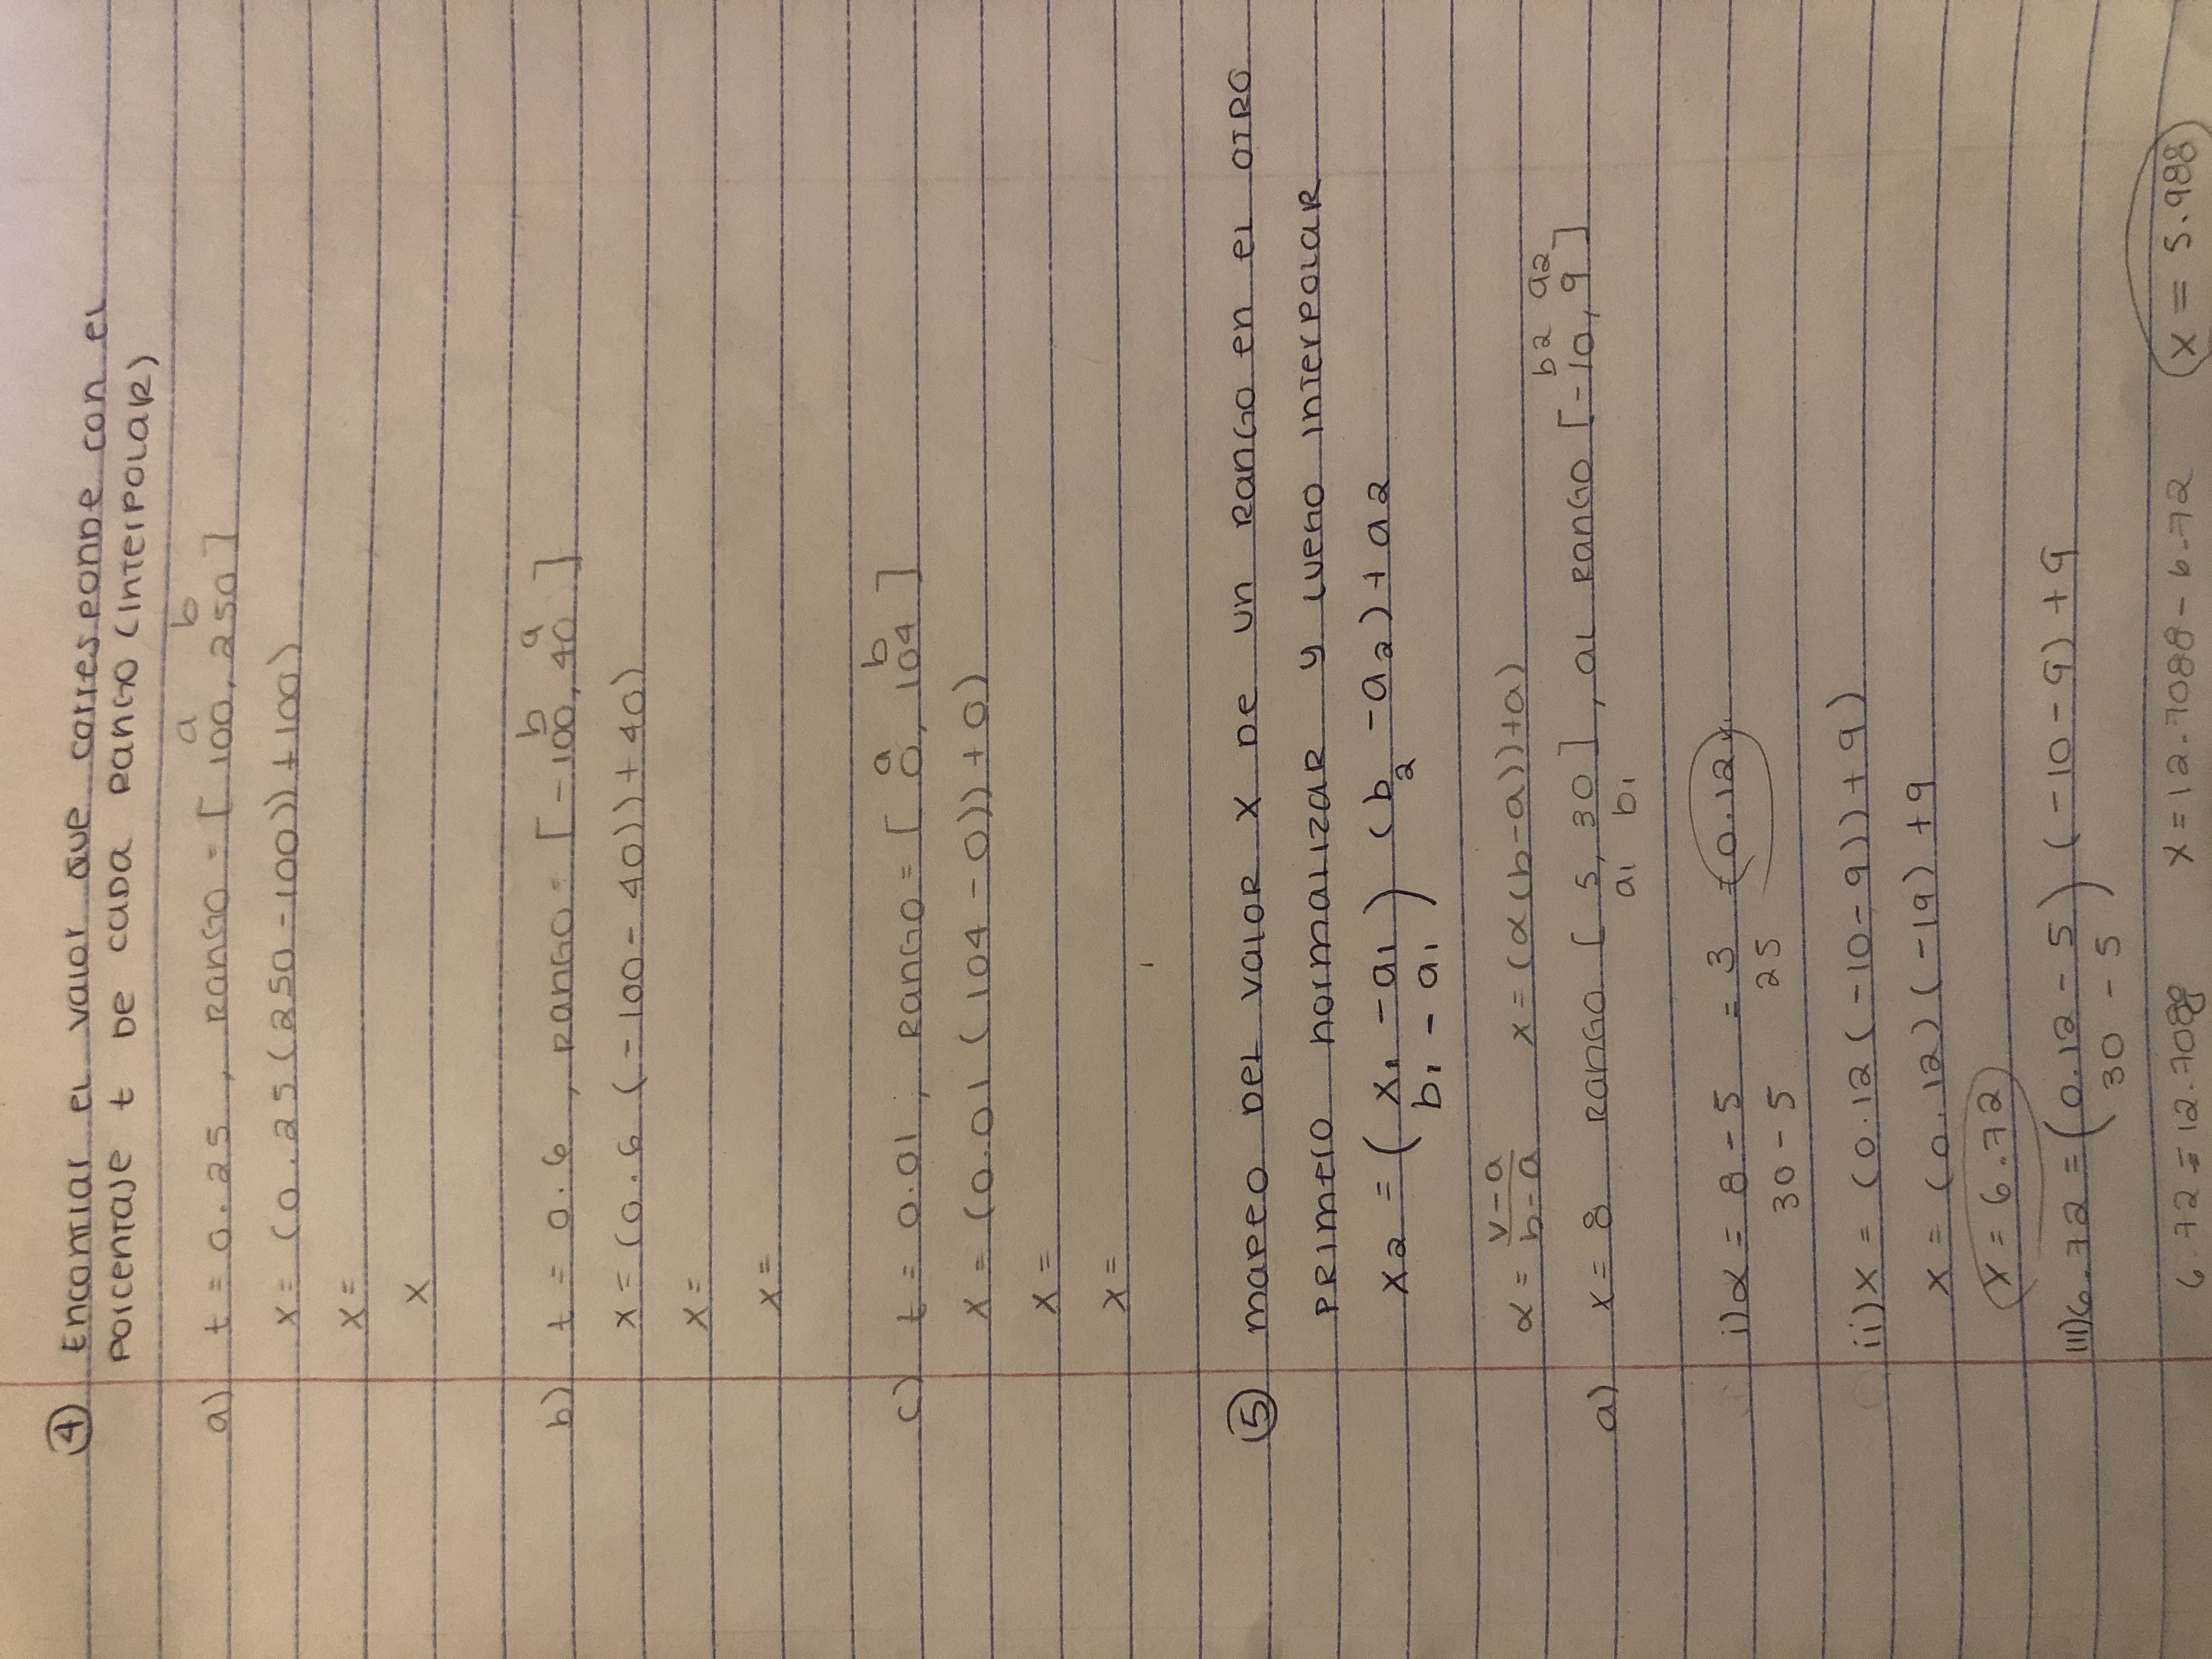 ④ Encontrar el valor que corresponde con el
porcentaje t de cada rango (interpolar)
a b
a) t = 0.25 , Rango = [ 100, 250 ]
x = (0.25 (250 - 100)) + 100)
x =
x
b a
b) t = 0.6 , Rango = [ -100, 40 ]
x = (0.6 ( -100 - 40)) + 40)
x =
x =
a b
c) t = 0.01 , Rango = [ 0, 104 ]
x = (0.01 ( 104 - 0)) + 0)
x =
x =
⑤ mapeo del valor x de un rango en el otro
primero normalizar y luego interpolar
x2 = ( x1 - a1 ) (b2 - a2) + a2
b1 - a1
v-a
α = b-a x = (α(b-a))+a)
b2 a2
a) x = 8 Rango [ 5, 30 ] , al rango [-10, 9 ]
a1 b1
i) α = 8 - 5 = 3 = 0.12
30 - 5 25
ii) x = (0.12 ( -10 - 9)) + 9)
x = (0.12) ( -19) + 9
x = 6.72
III) 6.72 = ( 0.12 - 5 ) ( -10 - 9) + 9
30 - 5
6.72 = 12.7088 x = 12.7088 - 6.72 x = 5.988